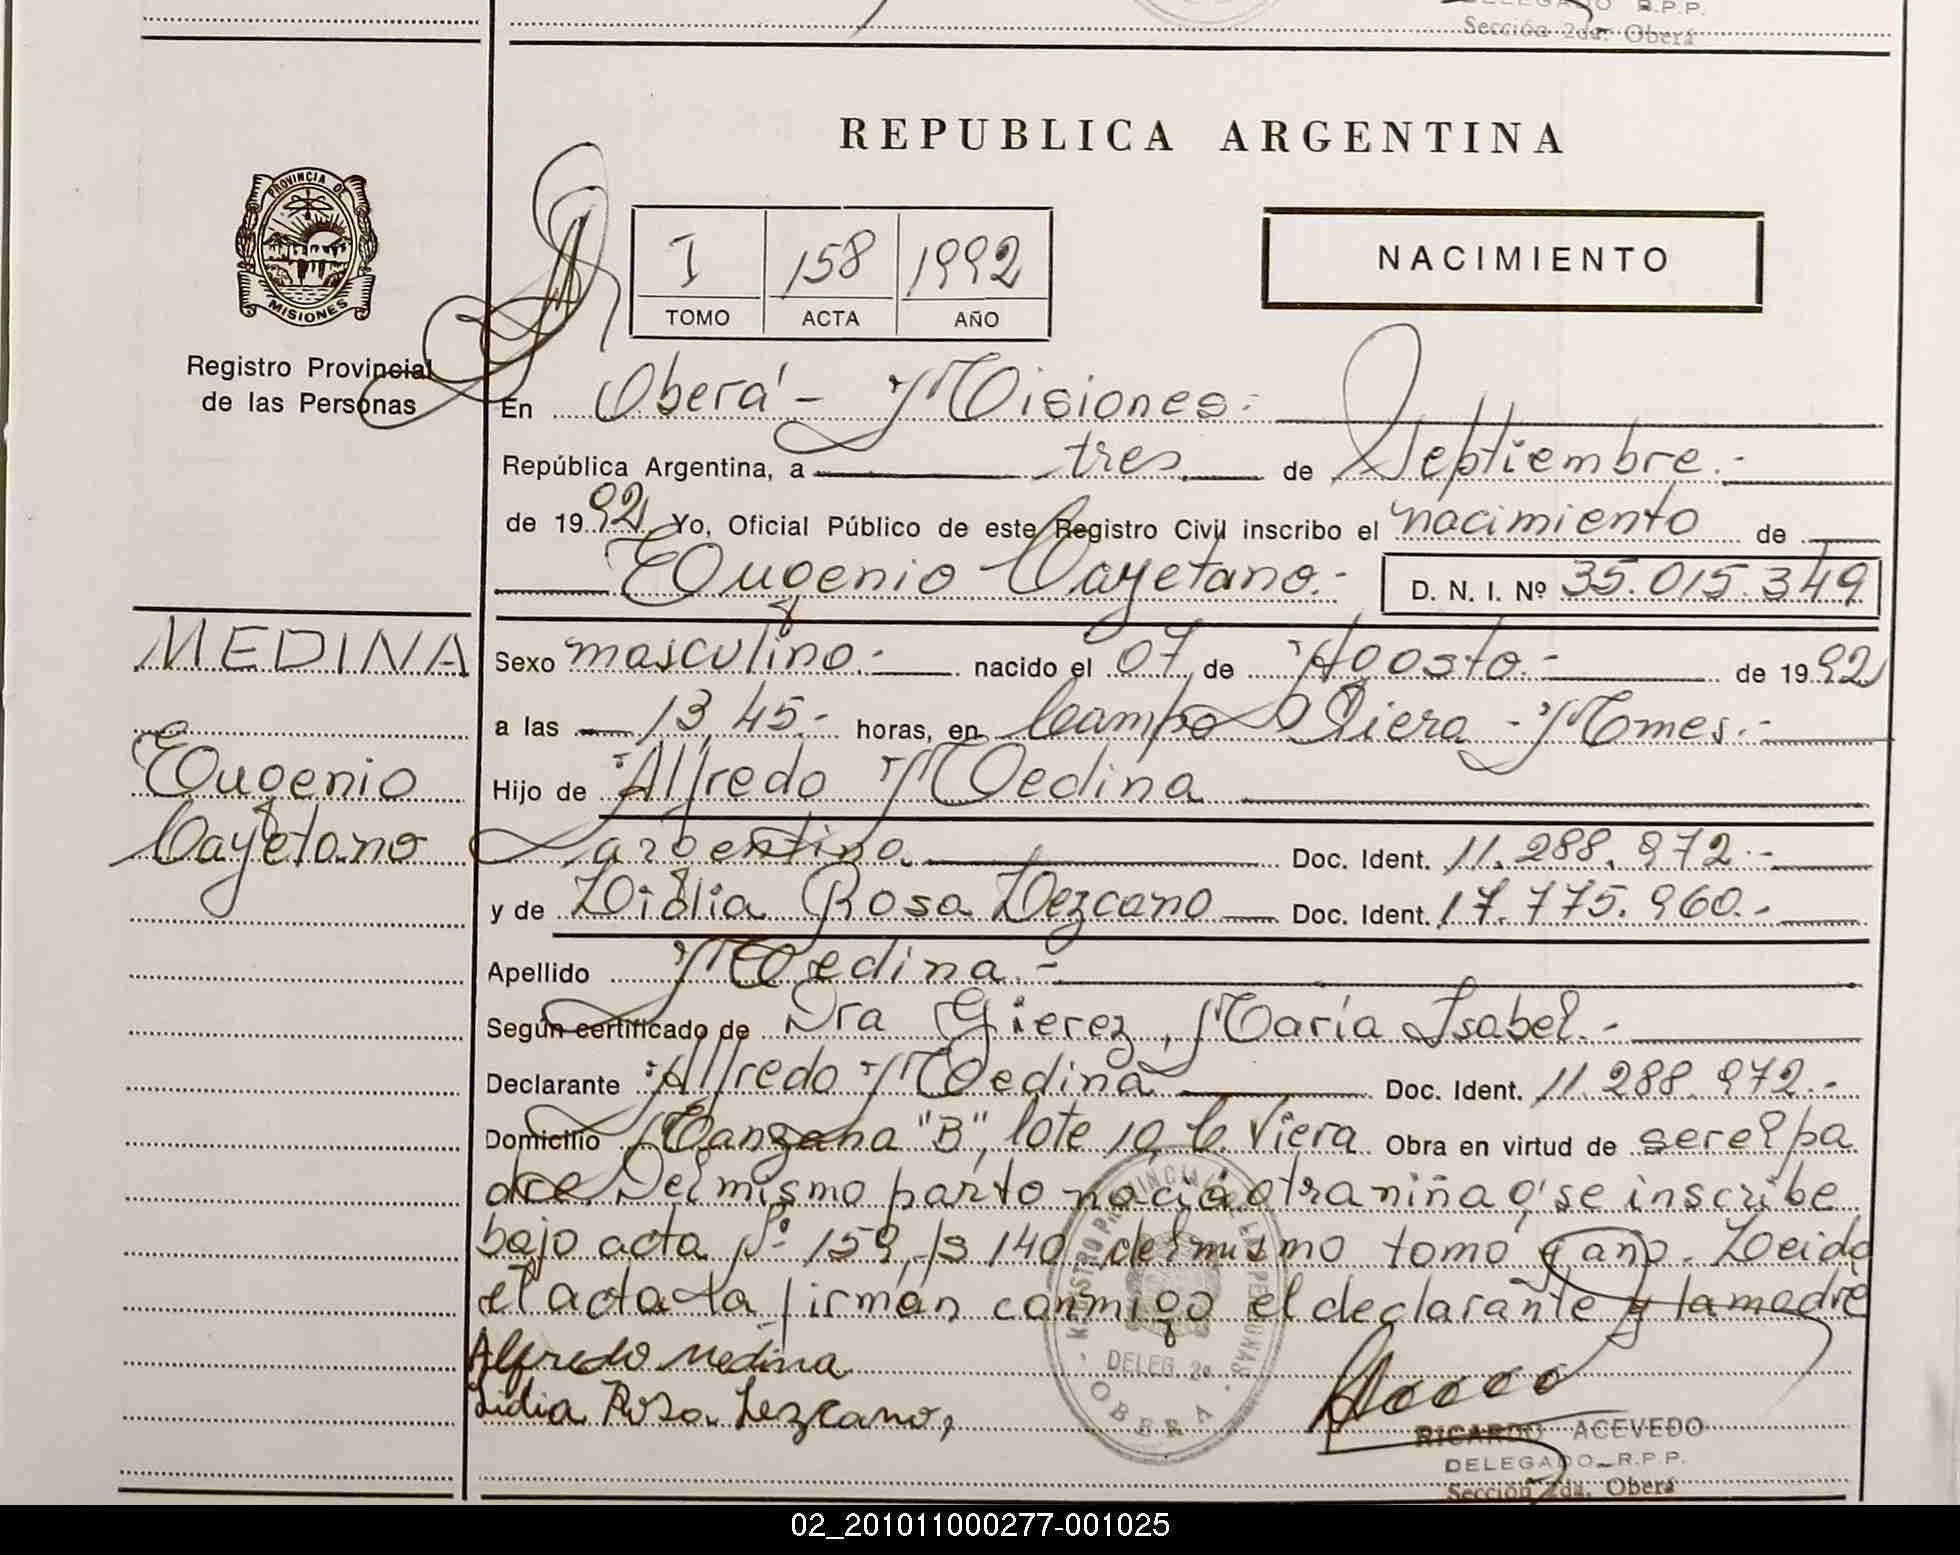 DELEGADO R.P.P.
Sección 2da. Oberá
REPUBLICA ARGENTINA
PROVINCIA DE
MISIONES
Registro Provincial
de las Personas
I 158 1992
TOMO ACTA AÑO
NACIMIENTO
En Oberá - Misiones.-
República Argentina, a tres de Septiembre.-
de 1992 Yo, Oficial Público de este Registro Civil inscribo el nacimiento de
Eugenio Cayetano.- D. N. I. Nº 35.015.349
MEDINA
Eugenio
Cayetano
Sexo masculino.- nacido el 07 de Agosto.- de 1992
a las 13,45.- horas, en Campo Viera - Mnes.-
Hijo de Alfredo Medina
argentino Doc. Ident. 11.288.972.-
y de Lidia Rosa Lezcano Doc. Ident. 17.775.960.-
Apellido Medina.-
Según certificado de Dra Gierez, María Isabel.-
Declarante Alfredo Medina Doc. Ident. 11.288.972.-
Domicilio Manzana "B", lote 10, C. Viera Obra en virtud de ser el pa
dre. Del mismo parto nació otra niña q' se inscribe
bajo acta Nº 159, fs 140 del mismo tomo y año. Leida
el acta la firman conmigo el declarante y la madre
Alfredo Medina
Lidia Rosa Lezcano,
REGISTRO PROVINCIAL DE LAS PERSONAS
DELEG. 2a
OBERA
RICARDO ACEVEDO
DELEGADO R.P.P.
Sección 2da. Oberá
02_201011000277-001025